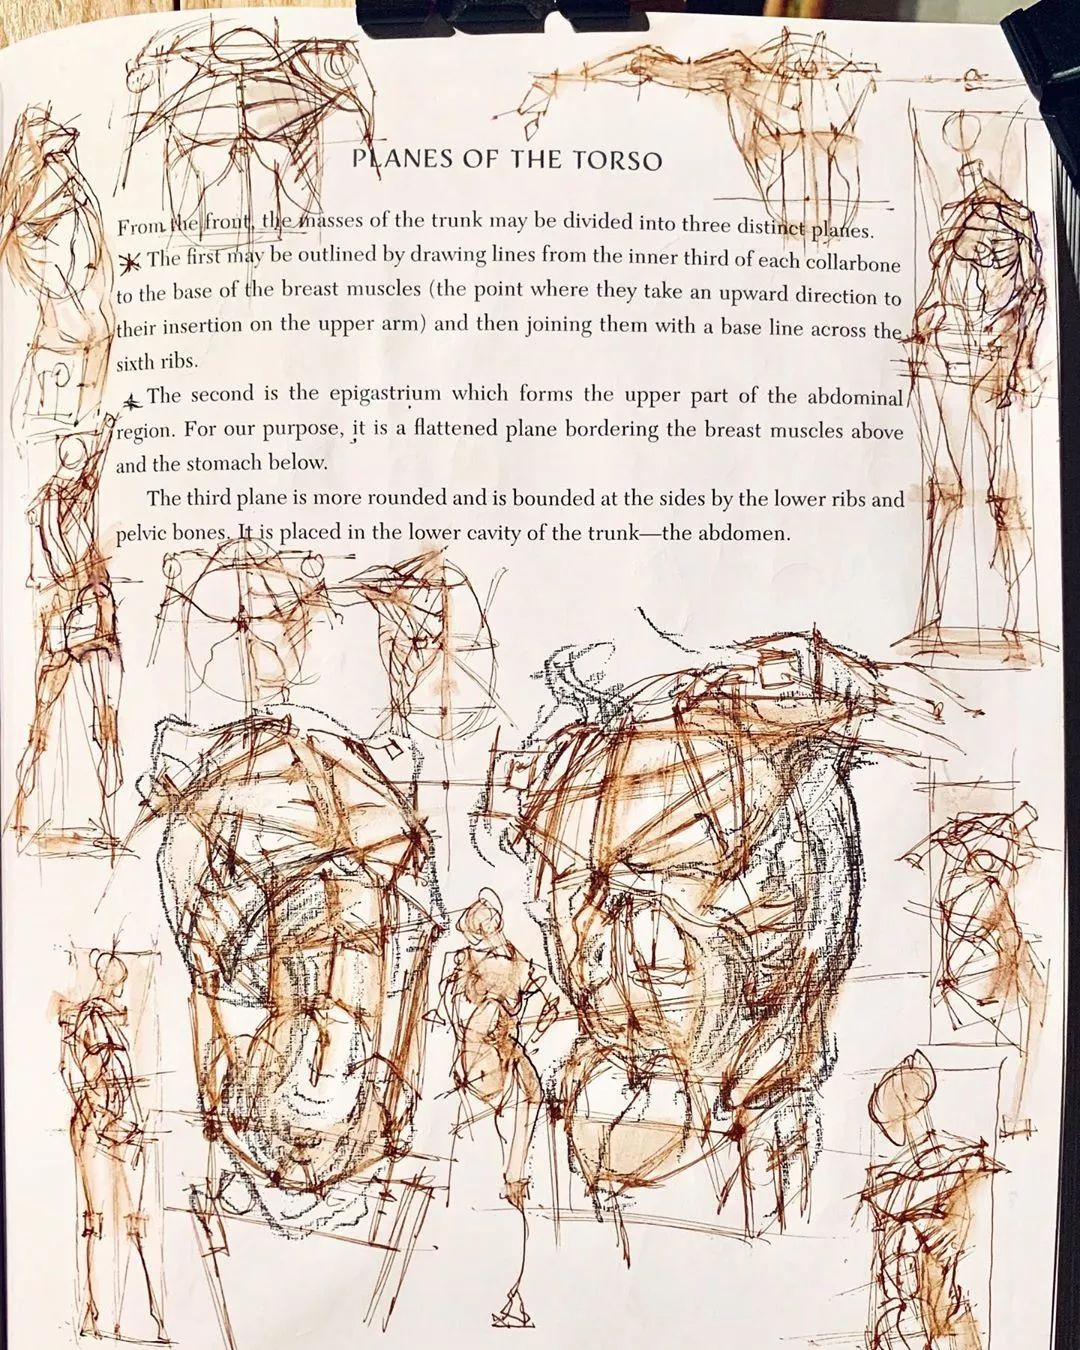 PLANES OF THE TORSO
From the front, the masses of the trunk may be divided into three distinct planes.
The first may be outlined by drawing lines from the inner third of each collarbone
to the base of the breast muscles (the point where they take an upward direction to
their insertion on the upper arm) and then joining them with a base line across the
sixth ribs.
The second is the epigastrium which forms the upper part of the abdominal
region. For our purpose, it is a flattened plane bordering the breast muscles above
and the stomach below.
The third plane is more rounded and is bounded at the sides by the lower ribs and
pelvic bones. It is placed in the lower cavity of the trunk—the abdomen.